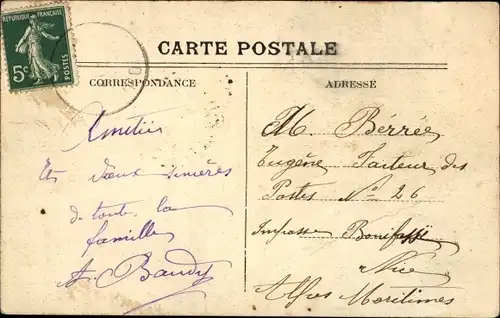 REPUBLIQUE FRANÇAISE
5c
POSTES
CARTE POSTALE
CORRESPONDANCE
ADRESSE
Amitiés
Et Vœux sincères
de toute la
famille
A. Baudy
M. Bérrée
Eugène Facteur des
Postes No 26
Impasse Bonifassi
Nice
Alpes Maritimes